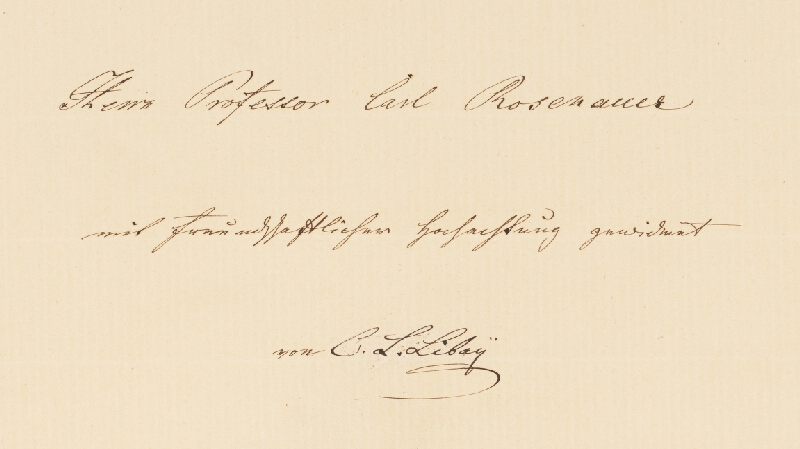 Herrn Professor Carl Rosenauer
mit freundschaftlicher Hochachtung gewidmet
von C. L. Libaÿ